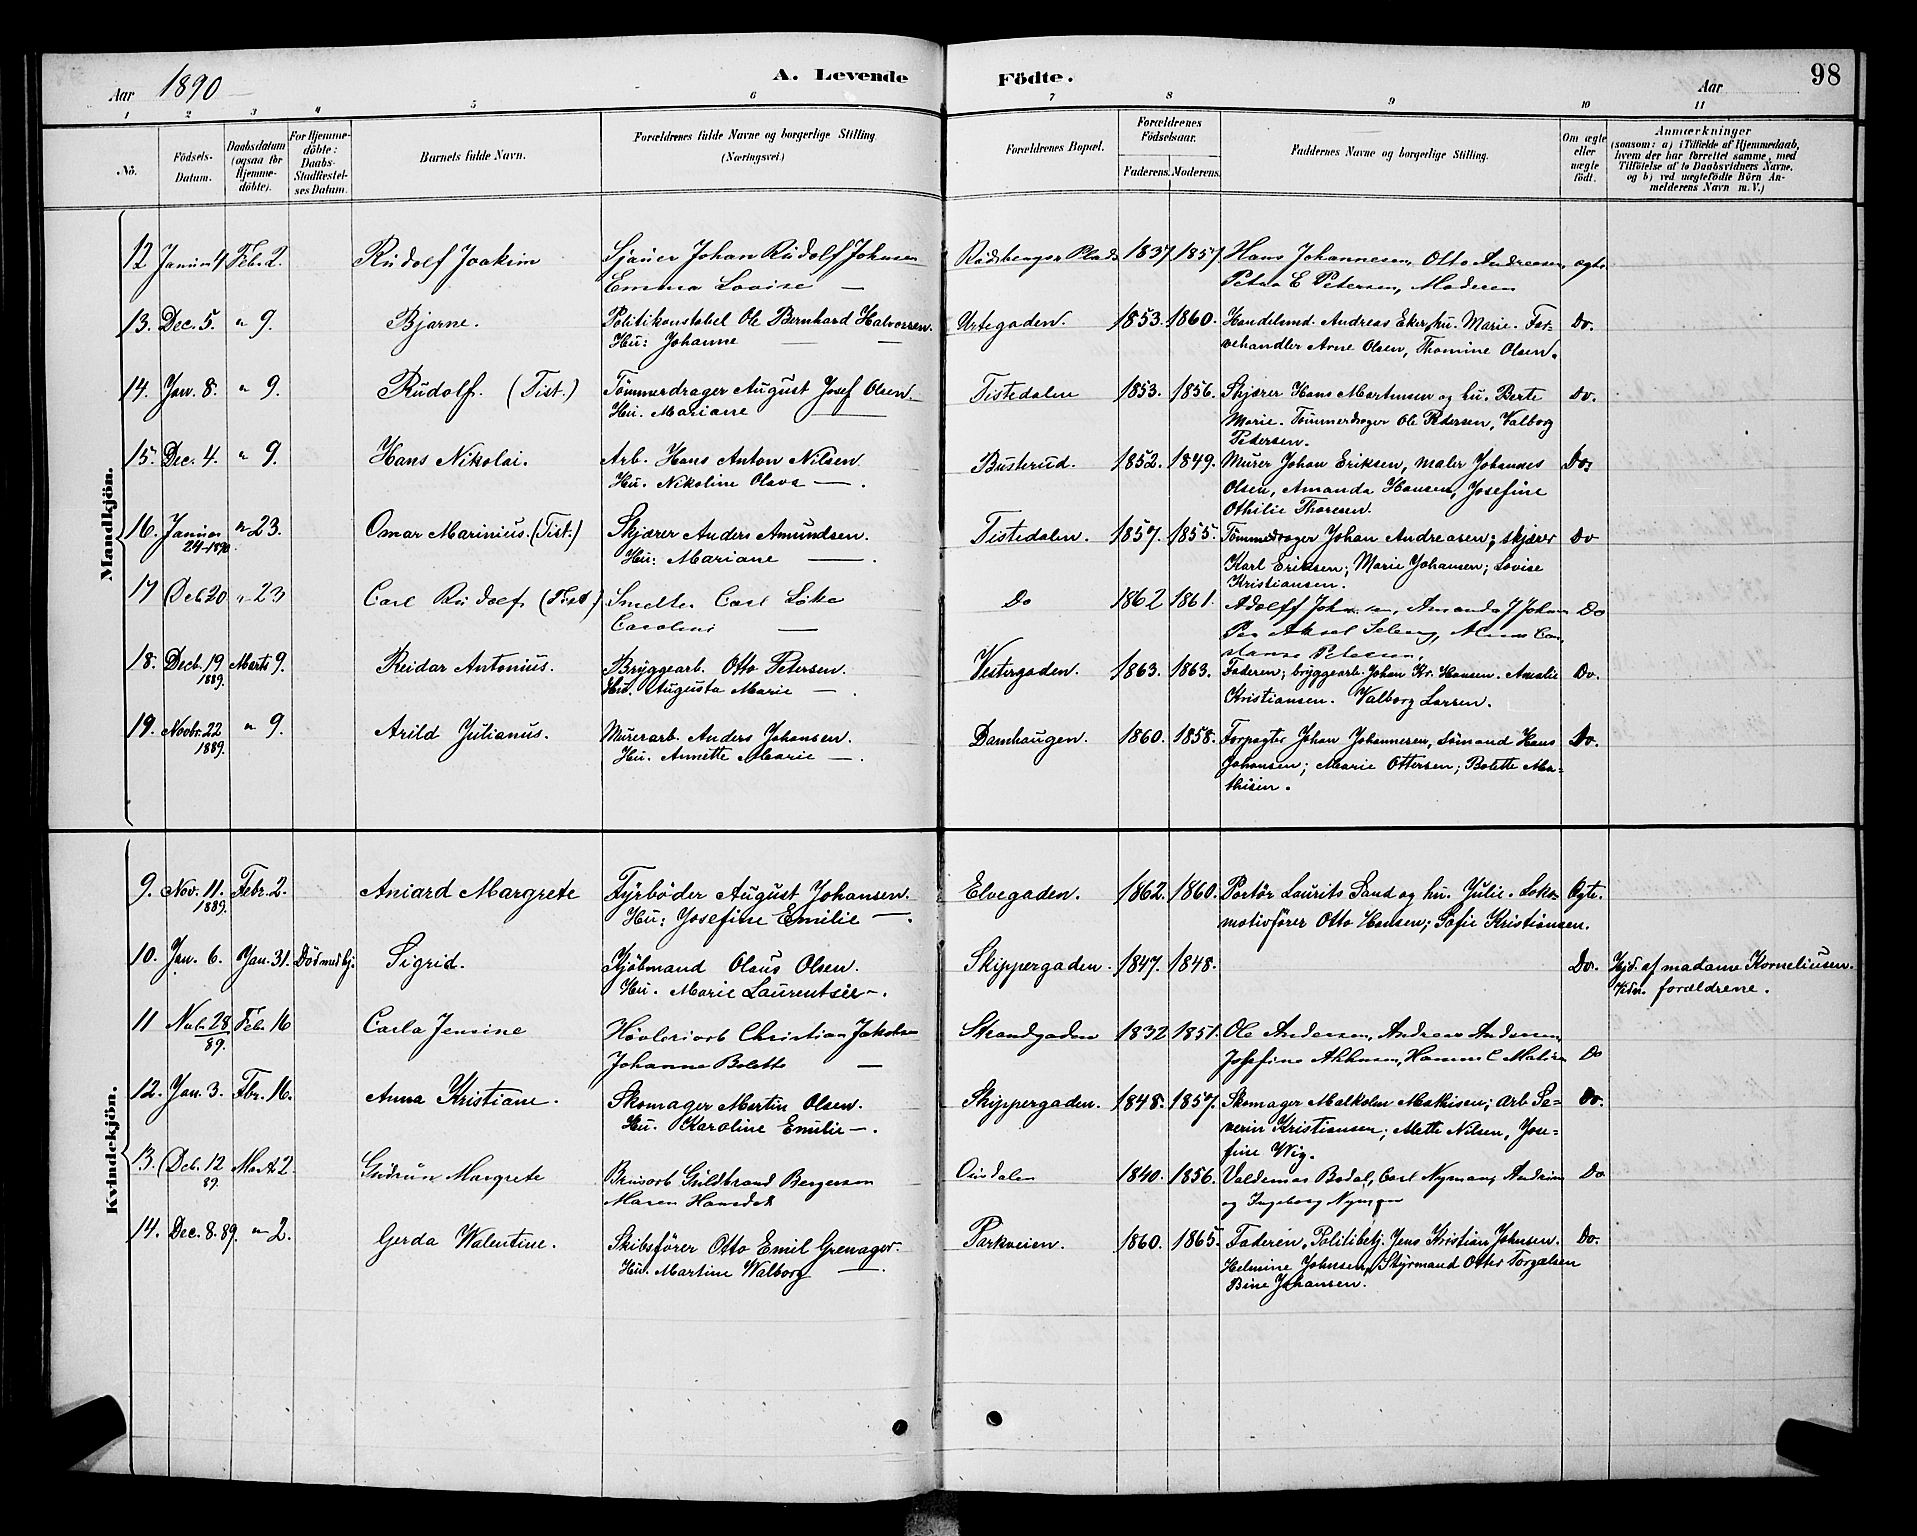 Aar 1890
A. Levende Födte.
Aar
98
1 2 3 4 5 6 7 8 9 10 11
No.
Födsels-Datum.
Daabsdatum (ogsaa for Hjemme-döbte).
For Hjemme-döbte: Daabs-Stadfæstel-ses Datum.
Barnets fulde Navn.
Forældrenes fulde Navne og borgerlige Stilling. (Næringsvei.)
Forældrenes Bopæl.
Forældrenes Födselsaar.
Faderens. Moderens.
Faddernes Navne og borgerlige Stilling.
Om ægte eller uægte födt.
Anmærkninger (saasom: a) i Tilfælde af Hjemmedaab, hvem der har forrettet samme, med Tilföielse af to Daabsvidners Navne, og b) ved uægtefödte Börn An-melderens Navn m. V.)
Mandkjön.
12 4 Feb. 2. Rudolf Joakim Sjauer Johan Rudolf Johnsen 1837 1857 Hans Johannesen, Otto Andreasen, ægte
Emma Lovise — E Petersen, Moderen
13. Dec. 5. " 9. Bjarne. Politikonstabel Ole Bernhard Halvorsen. Urtegaden. 1853. 1860. Handelsmd. Andreas Eker, hu. Marie. Far- Do.
Hu: Johanne — — vehandler Arne Olsen, Thomine Olsen.
14. Jan. 8. " 9. Rudolf. (Tist.) Tømmerdrager August Josef Olsen. Tistedalen 1853. 1856. Skjærer Hans Martinsen og hu. Berte Do.
Hu. Mariane — Marie. Tømmerdrager Ole Pedersen, Valborg
Pedersen.
15. Dec. 4. " 9. Hans Nikolai. Arb. Hans Anton Nilsen Busterud. 1852. 1849. Murer Johan Eriksen, maler Johannes Do.
Hu. Nikoline Olava —. Olsen, Amanda Hansen, Josefine
Othilie Thoresen.
16. Januar " 23. Omar Marinius. (Tist.) Skjærer Anders Amundsen. Tistedalen. 1857. 1855. Tømmedrager Johan Andreasen; skjærer Do
24-1890. Hu: Mariane —. Karl Eriksen; Marie Johansen; Lovise
Kristiansen.
17 20 " 23 Carl Rudolf (Tist) Smelter Carl Do 1862 1861. Adolff Johnsen, Amanda J Do
— Aksel
18. Decb. 19 Marts 9. Reidar Antonius. Bryggearb. Otto Petersen. Vestergaden. 1863. 1863. Faderen; bryggearb. Johan Kr. Hansen. Amalie Do.
1889. Hu. Augusta Marie —. Kristiansen. Valborg Larsen.
19. Novbr. 22 " 9. Arild Julianus. Murerarb. Anders Johansen. Damhaugen. 1860. 1858. Forpagter Johan Johannesen, Sömand Hans Do.
1889. Hu. Annette Marie —. Johansen; Marie Ottersen; Bolette Ma-
thisen.
Kvindekjön.
9. Nov. 11. Febr. 2. Aniard Margrete Fyrbøder August Johansen. Elvegaden. 1862. 1860. Portör Laurits Sand og hu. Julie. Loko- Ægte.
1889. Hu: Josefine Emilie —. motivförer Otto Hansen; Sofie Kristiansen.
10. Jan. 6. Jan. 31. Död med hj. Sigrid. Kjöbmand Olaus Olsen. Skippergaden. 1847. 1848. Do. Hjd. af madame Korneliusen.
Hu. Marie Laurentse —. Vidn. forældrene.
11 28 Feb. 16 Carla Jensine Christian Jakobsen Strandgaden 1832 1851. Ole Andersen, Andreas Andersen,
89. Johanne Bolette — Josefine Do
12. Jan. 3. Fbr. 16. Anna Kristiane. Skomager Martin Olsen. Skippergaden. 1848. 1857. Skomager Malkolm Mathisen; arb Se- Do.
Hu. Karoline Emilie —. verin Kristiansen; Mette Nilsen, Jose-
fine Wig.
13. 12 Mart 2. Gudrun Margrete Gulbrand Bergersen 1840. 1856. Valdemar Bodal, Carl Nyman, Do
89. Maren og Ingeborg Nyman
14. Dec. 8. 89. " 2. Gerda Walentine. Skibsfører Otto Emil Grenager. Parkveien. 1860. 1865. Faderen, Politibetj. Jens Kristian Johnsen. Do.
Hu. Martine Walborg —. Helmine Johnsen, Styrmand Otter Torgalsen
Bine Johansen.